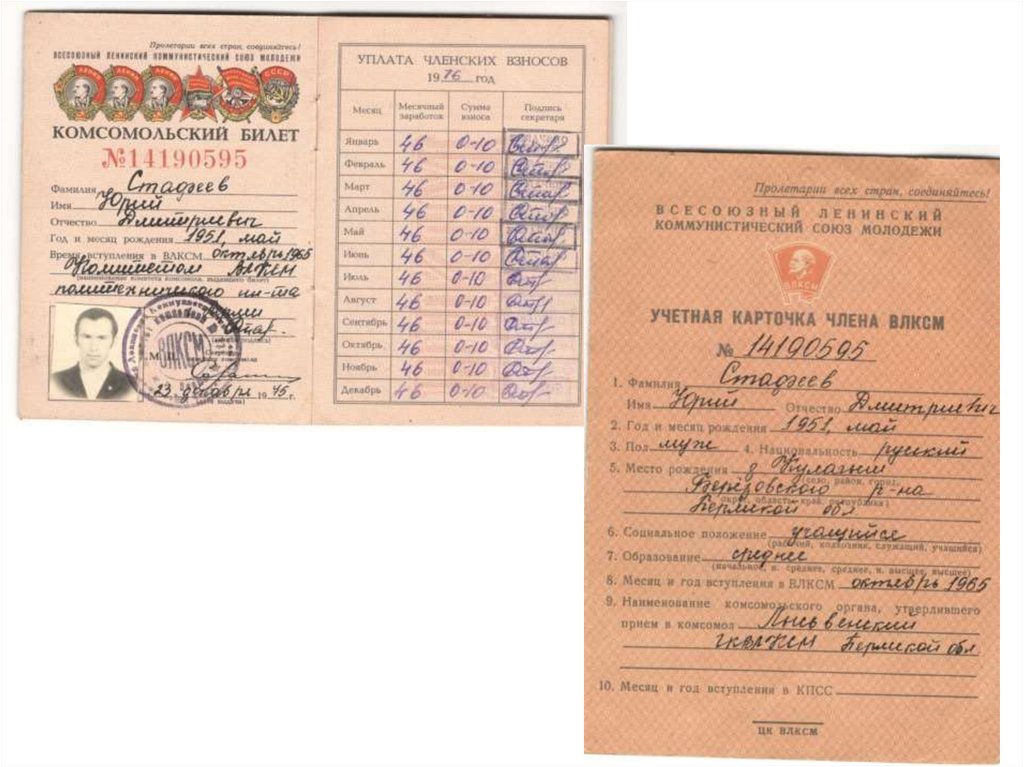 Пролетарии всех стран, соединяйтесь!
ВСЕСОЮЗНЫЙ ЛЕНИНСКИЙ КОММУНИСТИЧЕСКИЙ СОЮЗ МОЛОДЕЖИ
КОМСОМОЛЬСКИЙ БИЛЕТ
№14190595
Фамилия Стажеев
Имя Юрий
Отчество Дмитриевич
Год и месяц рождения 1951, май
Время вступления в ВЛКСМ октябрь 1965
Комитетом ВЛКСМ
(наименование комитета комсомола, выдавшего билет)
политехнического ин-та
ВЛКСМ
М. П.
23 декабря 1975 г.
УПЛАТА ЧЛЕНСКИХ ВЗНОСОВ
1976 год
Месяц Месячный заработок Сумма взноса Подпись секретаря
Январь 46 0-10
Февраль 46 0-10
Март 46 0-10
Апрель 46 0-10
Май 46 0-10
Июнь 46 0-10
Июль 46 0-10
Август 46 0-10
Сентябрь 46 0-10
Октябрь 46 0-10
Ноябрь 46 0-10
Декабрь 46 0-10
Пролетарии всех стран, соединяйтесь!
ВСЕСОЮЗНЫЙ ЛЕНИНСКИЙ
КОММУНИСТИЧЕСКИЙ СОЮЗ МОЛОДЕЖИ
ВЛКСМ
УЧЕТНАЯ КАРТОЧКА ЧЛЕНА ВЛКСМ
№ 14190595
1. Фамилия Стажеев
Имя Юрий Отчество Дмитриевич
2. Год и месяц рождения 1951, май
3. Пол муж 4. Национальность русский
5. Место рождения д Кулагины
(село, район, город,
Берёзовского р-на
округ, область, край, республика)
Пермской обл
6. Социальное положение учащийся
(рабочий, колхозник, служащий, учащийся)
7. Образование среднее
(начальное, н. среднее, среднее, н. высшее, высшее)
8. Месяц и год вступления в ВЛКСМ октябрь 1965
9. Наименование комсомольского органа, утвердившего
прием в комсомол Лысьвенский
ГК ВЛКСМ Пермской обл.
10. Месяц и год вступления в КПСС
ЦК ВЛКСМ